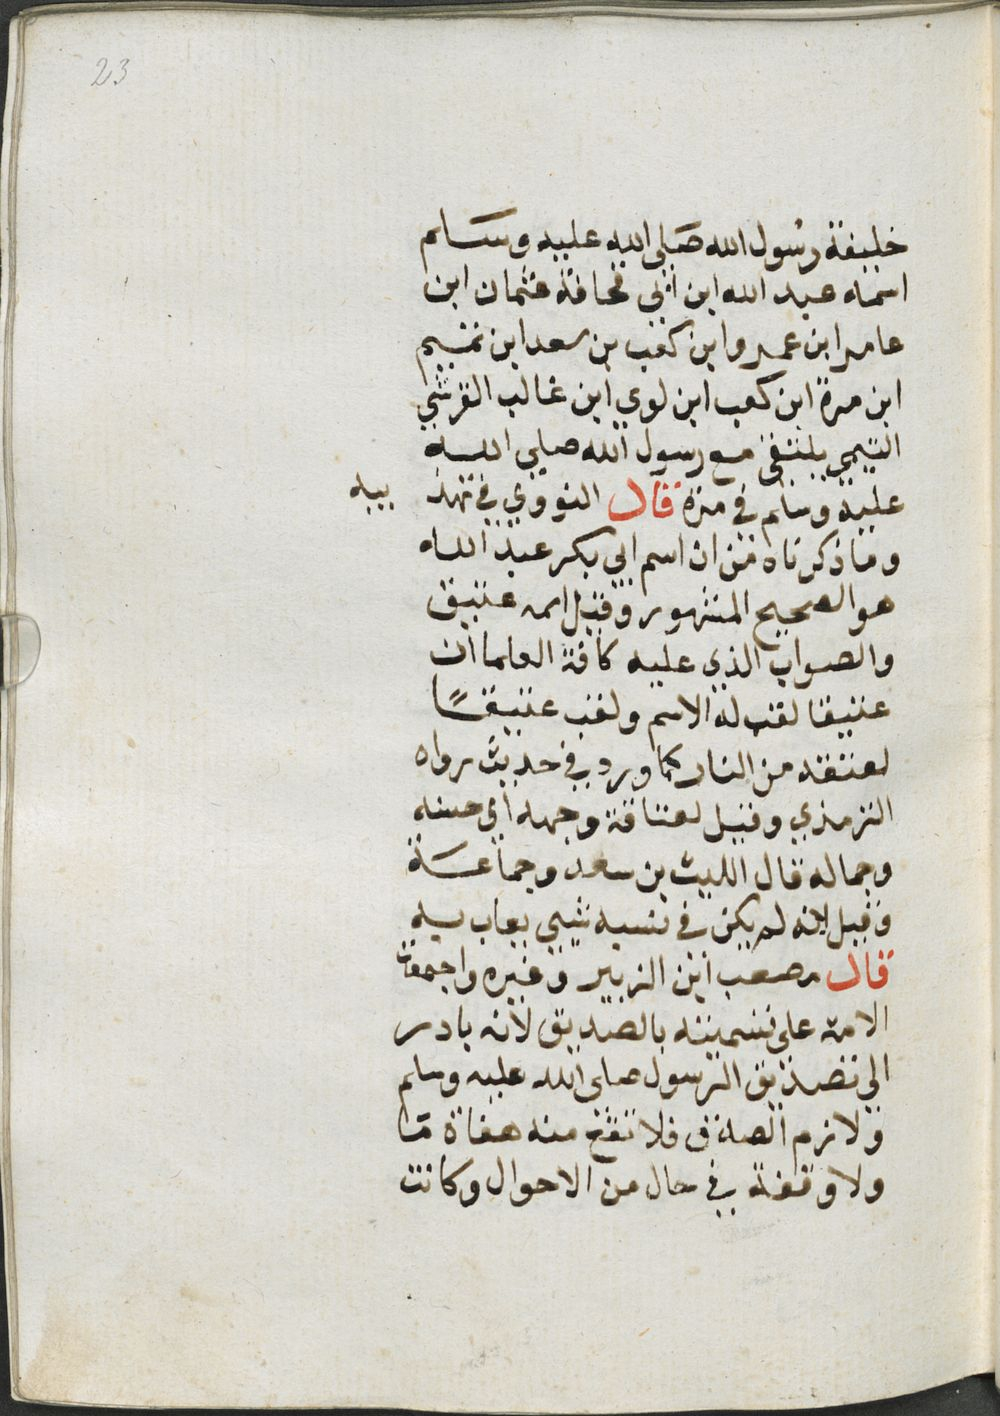 23
خليفة رسول الله صلى الله عليه وسلم
اسمه عبد الله ابن ابي قحافة عثمان ابن
عامر ابن عمرو ابن كعب بن سعد ابن تميم
ابن مرة ابن كعب ابن لوي ابن غالب القرشي
التيمي يلتقى مع رسول الله صلي اللـه
عليه وسلم في مرة قال النووي في تهذ يبه
وما ذكرناه من ان اسم ابي بكر عبد اللـه
هو الصحيح المشهور وقيل اسمه عتيق
والصواب الذي عليه كافة العلما ان
عتيقا لقب له الاسم ولقب عتيقًا
لعتقه من النار كما ورد في حديث رواه
الترمذي وقيل لعتاقة وجهه اي حسنه
وجماله قال الليث بن سعد وجماعة
وقيل لانه لم يكن في نسبه شي يعاب به
قال مصعب ابن الزبير وغيره واجمعت
الامة على تسميته بالصديق لانه بادر
الى تصديق الرسول صلى الله عليه وسلم
ولازم الصدق فلا تقع منه هفاة ما
ولا وقفة في حال من الاحوال وكانت